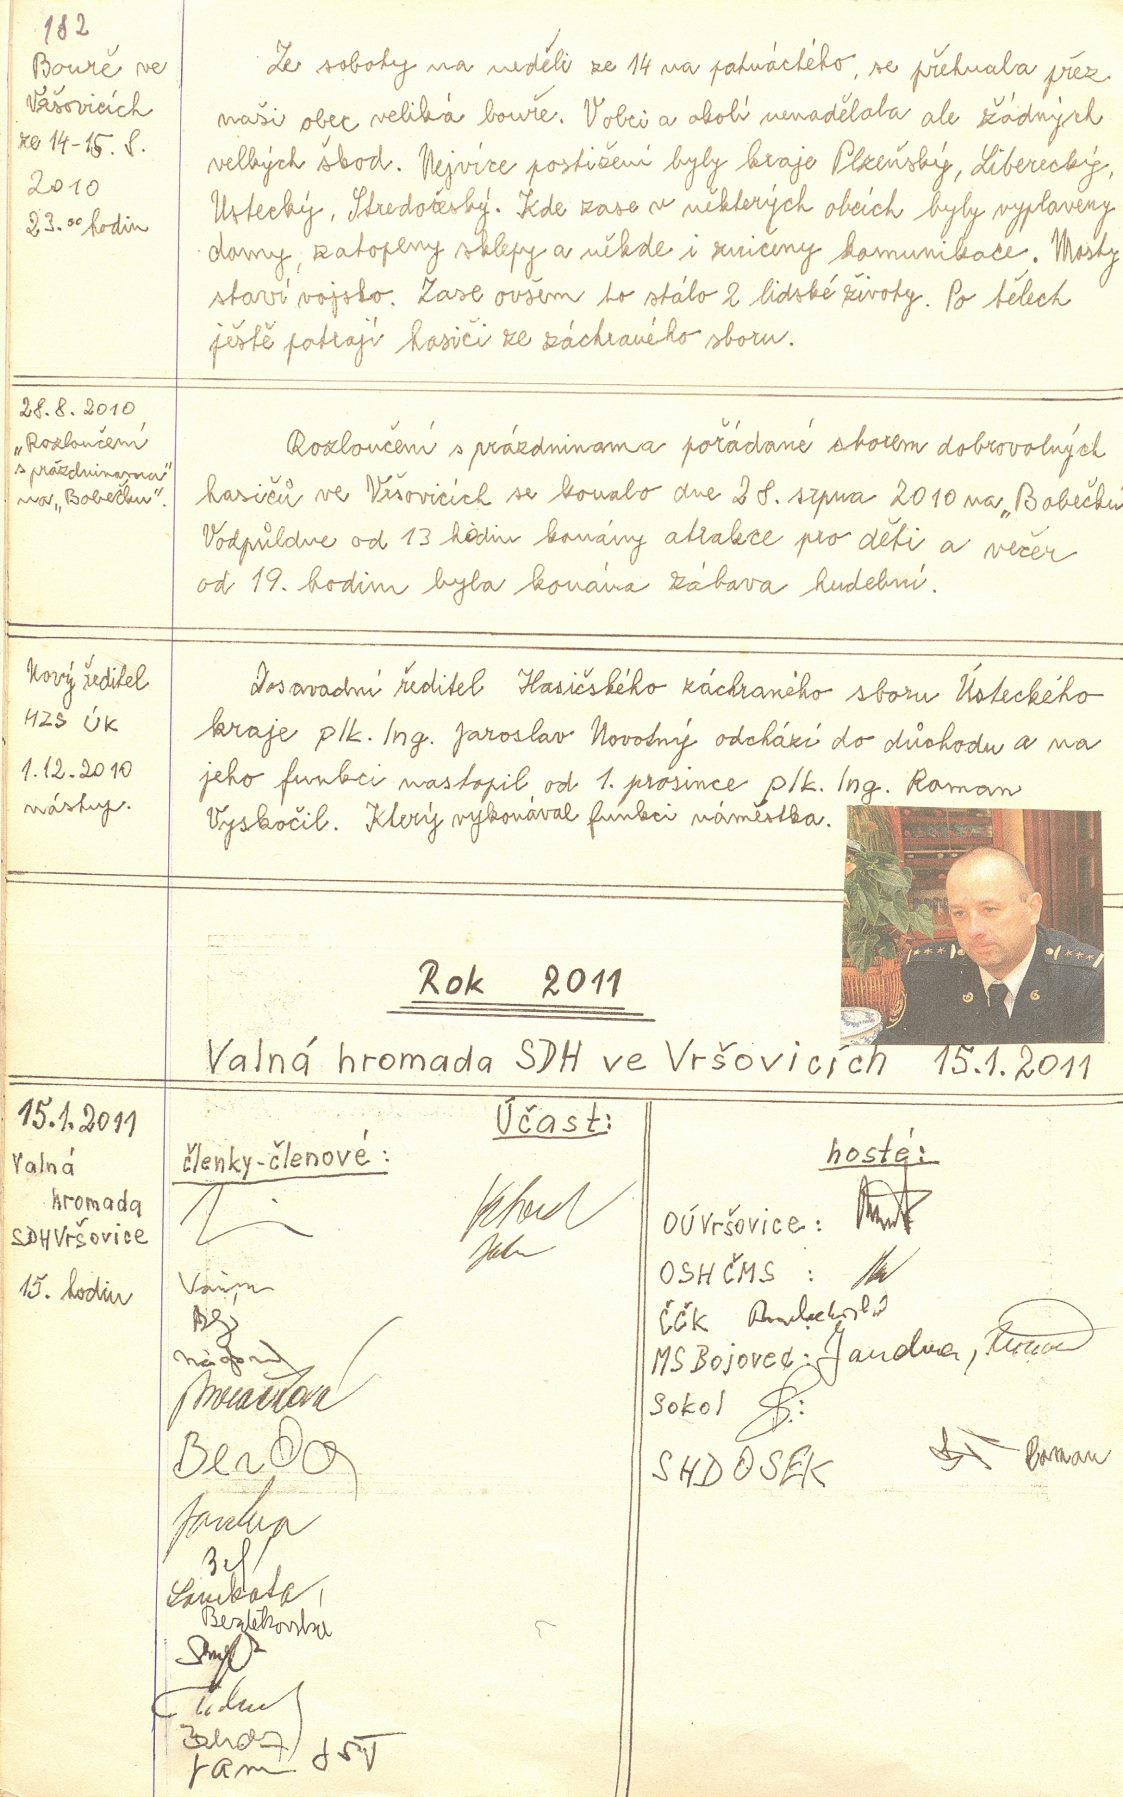 182
Bouře ve
Vršovicích
ze 14-15. 8.
2010
23.00 hodin
Ze soboty na neděli ze 14 na patnáctého, se přehnala přez
naši obec veliká bouře. V obci a okolí nenadělala ale žádných
velkých škod. Nejvíce postižení byly kraje Plzeňský, Liberecký,
Ustecký, Středočeský. Kde zase v některých obcích byly vyplaveny
domy, zatopeny sklepy a někde i zničeny komunikace. Mosty
staví vojsko. Zase ovšem to stálo 2 lidské životy. Po tělech
ještě patrají hasiči ze záchraného sboru.
28.8.2010
„Rozloučení
s prázdninama"
na „Bobečku".
Rozloučení s prázdninama pořádané sborem dobrovolných
hasičů ve Vršovicích se konalo dne 28. srpna 2010 na „Bobečku
Vodpůldne od 13 hodin konány atrakce pro děti a večer
od 19. hodin byla konána zábava hudební.
Nový ředitel
HZS ÚK
1.12.2010
nástup.
Dosavadní ředitel Hasičského záchraného sboru Ústeckého
kraje plk. Ing. Jaroslav Novotný odchází do důchodu a na
jeho funkci nastopil od 1. prosince plk. Ing. Roman
Vyskočil. Který vykonával funkci náměstka.
Rok 2011
Valná hromada SDH ve Vršovicích 15.1.2011
15.1.2011
Valná
hromada
SDH Vršovice
15. hodin
Účast:
členky-členové:
hosté:
OÚ Vršovice:
OSH ČMS :
ČČK
MS Bojovec: Jandva,
Sokol :
SHD OSEK Roman